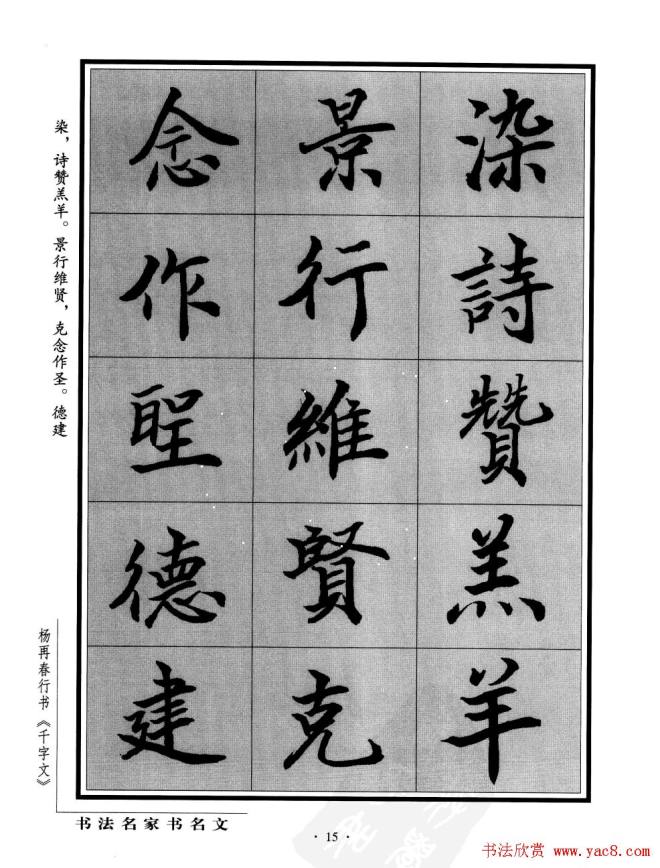 染詩贊羔羊
景行維賢克
念作聖德建
染，诗赞羔羊。景行维贤，克念作圣。德建
杨再春行书《千字文》
书法名家书名文
·15·
书法欣赏 www.yac8.com